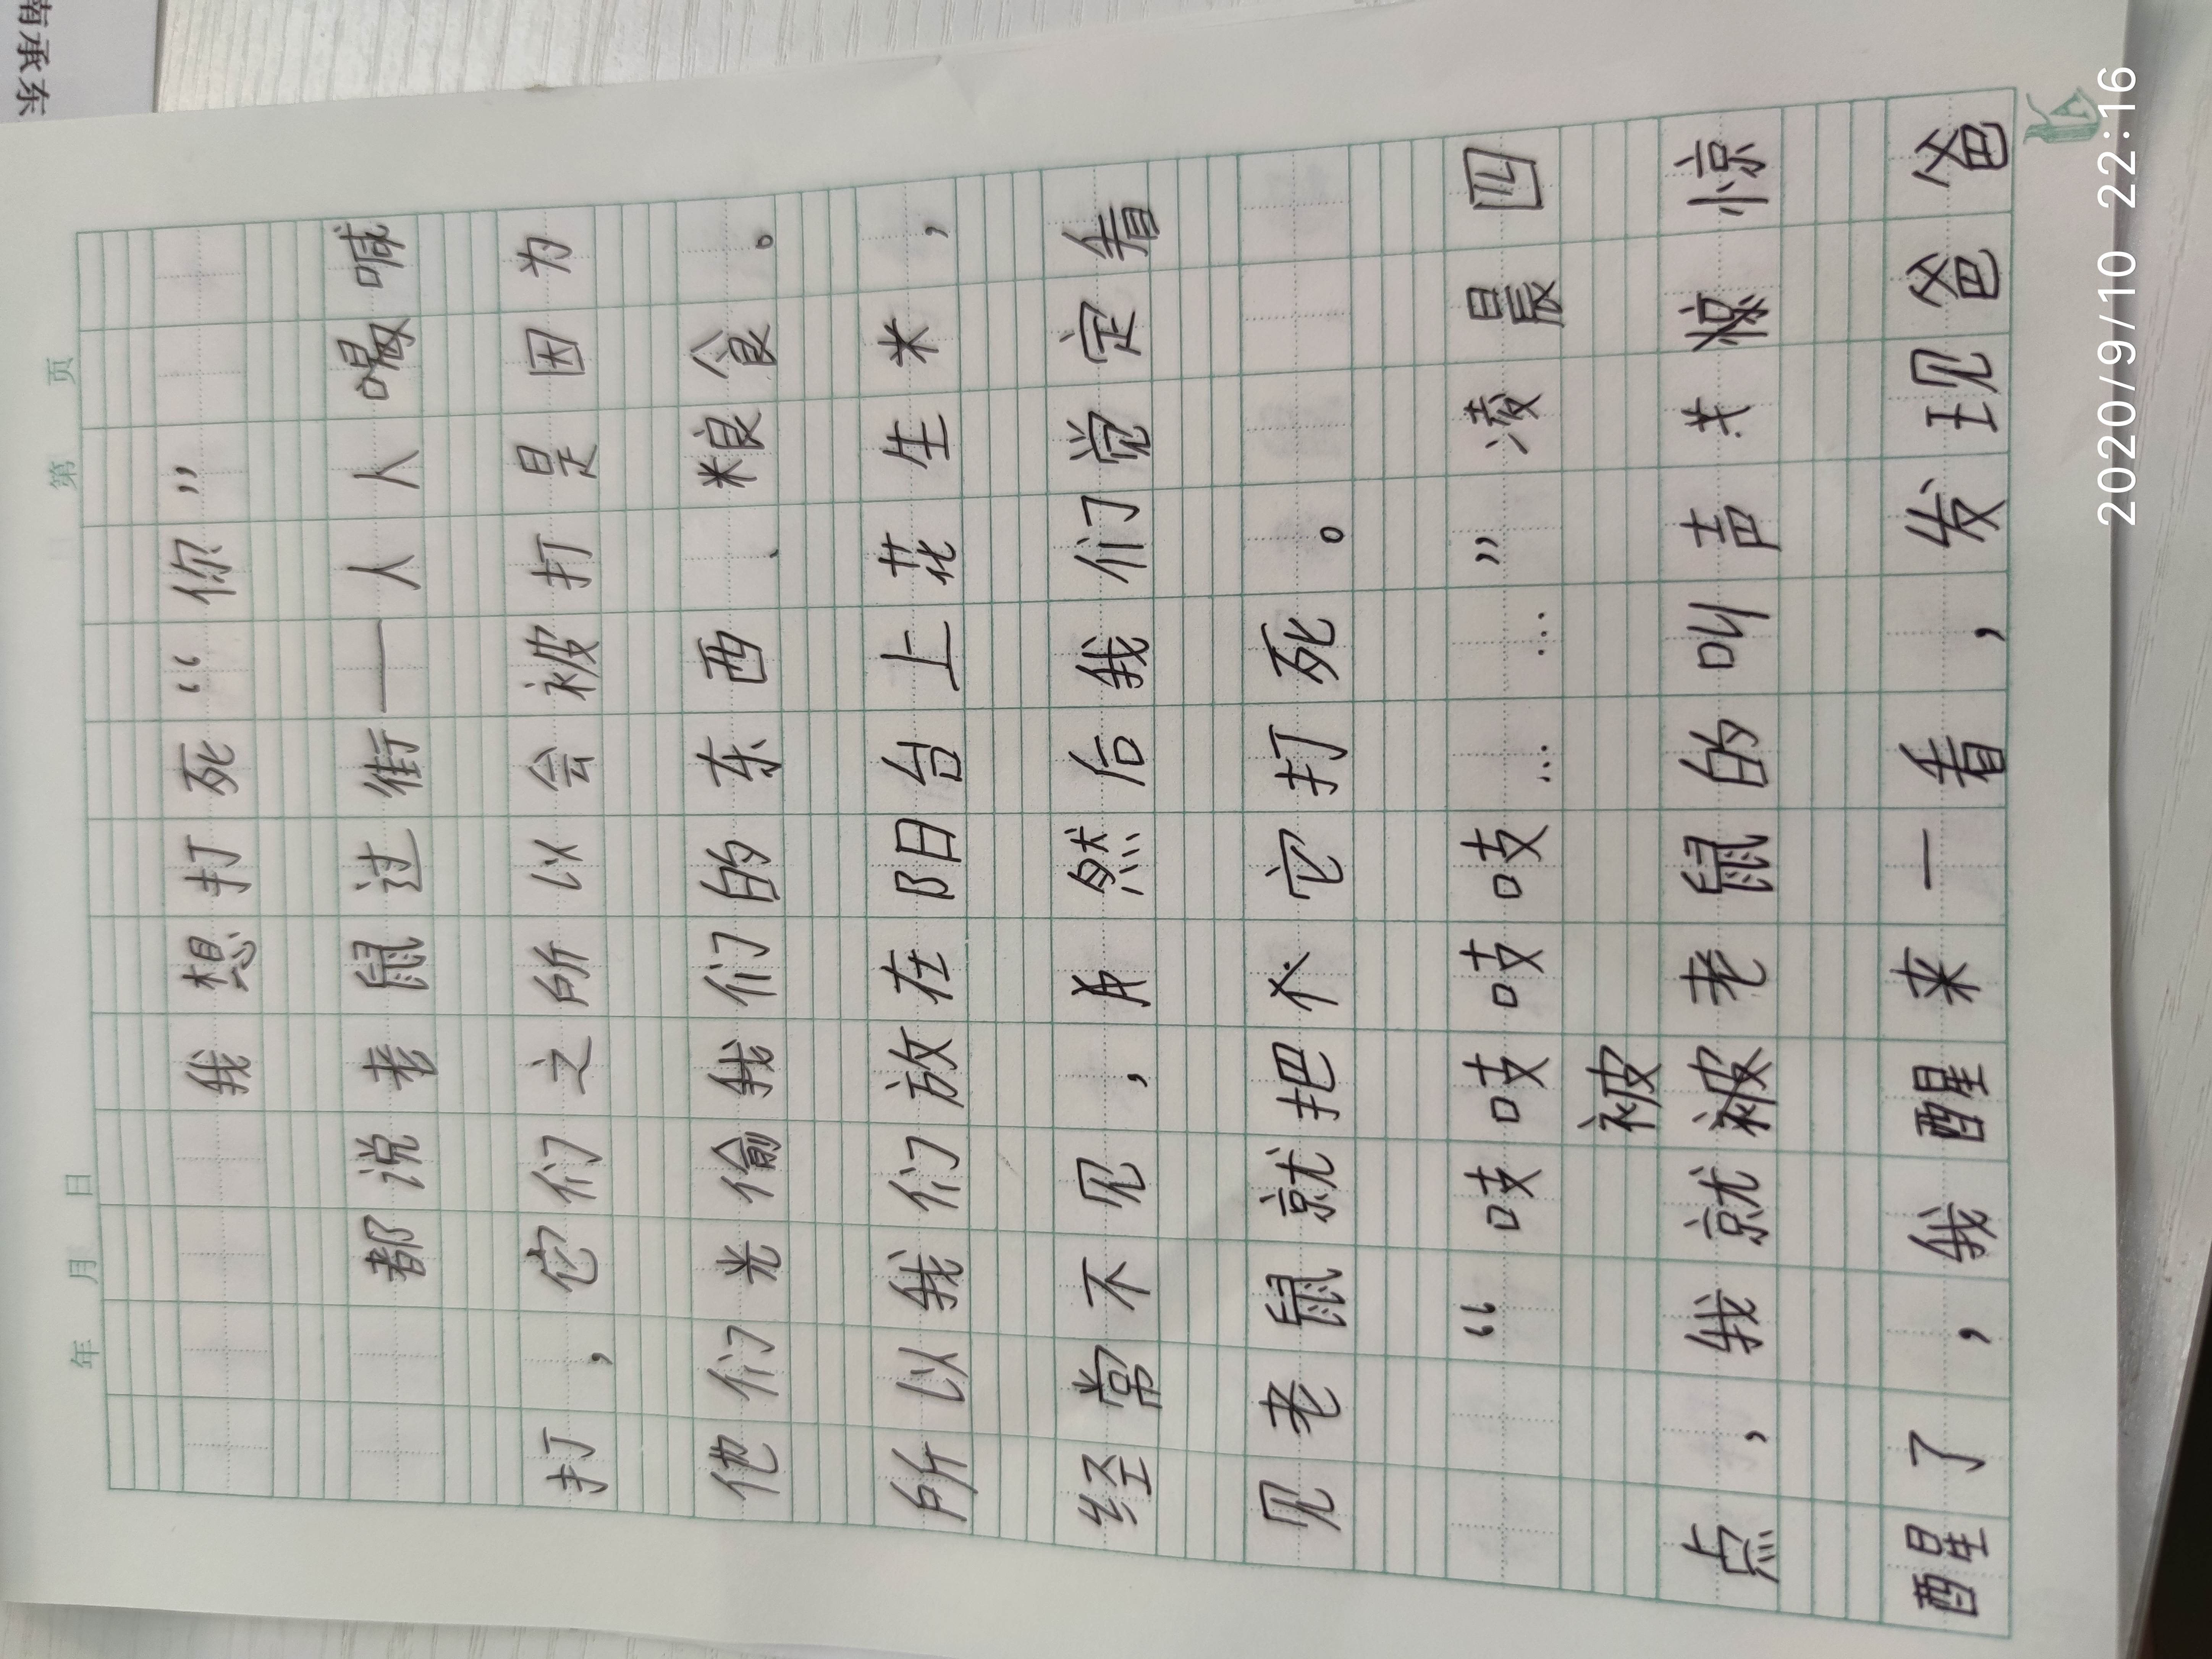 南承东
年 月 日 第 页
我想打死“你”
都说老鼠过街—人人喊
打，它们之所以会被打是因为
他们光偷我们的东西、粮食。
所以我们放在阳台上花生米，
经常不见，然后我们觉定看
见老鼠就把它打死。
“吱吱吱吱……”凌晨四
点，我就被老鼠的叫声惊
醒了，我醒来一看，发现爸爸
2020/9/10 22:16